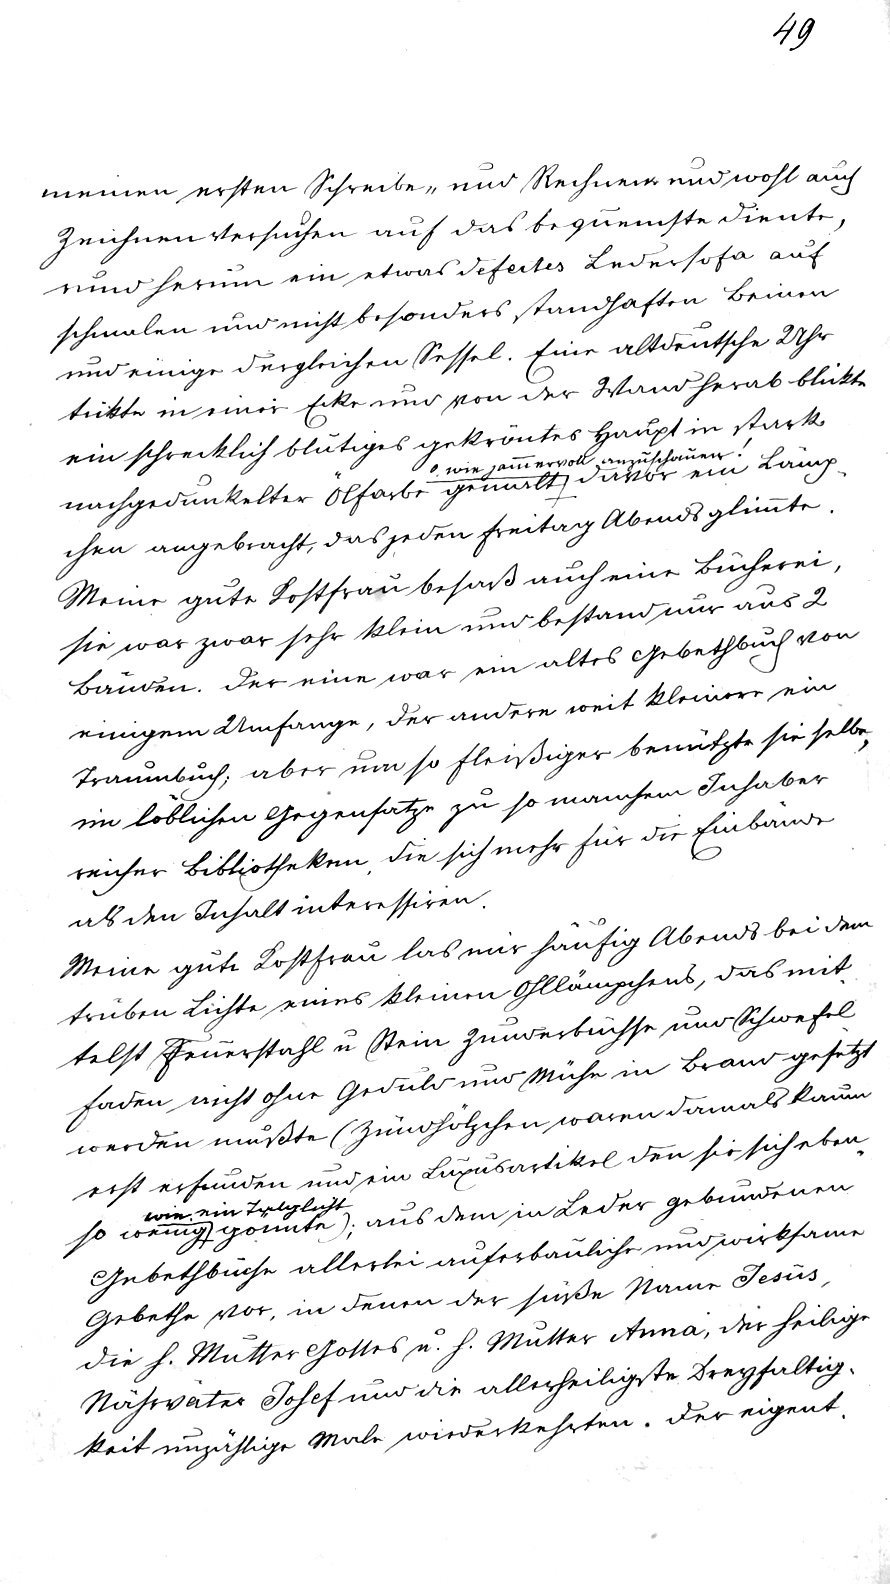 49
meinen ersten Schreibe„ und Rechnen„ und wohl auch
Zeichnenversuchen auf das bequemste diente,
rund herum ein etwas defectes Ledersofa auf
schmalen und nicht besonders standhaften Beinen
und einige dergleichen Sessel. Eine altdeutsche Uhr
tickte in einer Ecke und von der Wand herab blickte
ein schrecklich blutiges gekröntes Haupt in stark
o wie jam̅ervoll anzuschauen!
nachgedunkelter Ölfarbe gemalt, davor ein Lämp-
chen angebracht, das jeden Freitag Abends glim̅te.
Meine gute Kostfrau besaß auch eine Bücherei,
sie war zwar sehr klein und bestand nur aus 2
Bänden. Der eine war ein altes Gebethbuch von
einigem Umfange, der andere weit kleinere ein
Traumbuch; aber um so fleißiger benützte sie selbe,
im löblichen Gegensatze zu so manchem Inhaber
reicher Bibliotheken, die sich mehr für die Einbände
als den Inhalt interessiren.
Meine gute Kostfrau las mir häufig Abends bei dem
trüben Lichte eines kleinen Ohllämpchens, das mit-
telst Feuerstahl u Stein Zunderbüchse und Schwefel
faden nicht ohne Geduld und Mühe in Brand gesetzt
werden mußte (Zündhölzchen waren damals kaum
erst erfunden und ein Luxusartikel den sie sich eben-
wie ein Talglicht
so wenig gön̅te); aus dem in Leder gebundenen
Gebethbuche allerlei auferbauliche und wirksame
Gebethe vor, in denen der süße Name Jesus,
die h. Mutter Gottes u. h. Mutter Anna, der heilige
Nährvater Josef und die allerheiligste Dreyfaltig-
keit unzählige Male wiederkehrten. Der eigent-